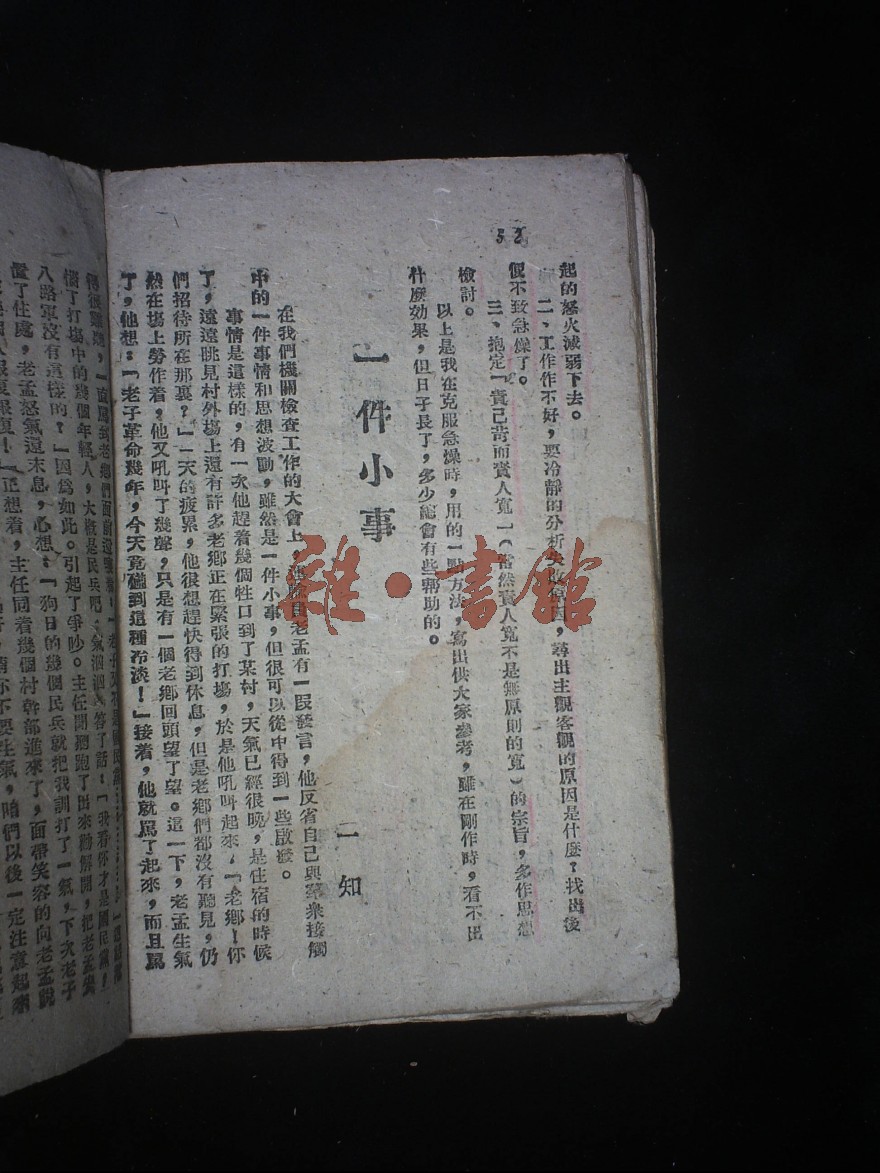 52
起的怒火減弱下去。
二、工作作不好，要冷靜的分析失敗原因，尋出主觀客觀的原因是什麼？找出後
便不致急燥了。
三、抱定「責己苛而責人寬」（當然責人寬不是無原則的寬）的宗旨，多作思想
檢討。
以上是我在克服急燥時，用的一點方法，寫出供大家參考，雖在剛作時，看不出
什麼効果，但日子長了，多少總會有些幫助的。
一件小事
一知
在我們機關檢查工作的大會上，老孟有一段發言，他反省自己與羣衆接觸
中的一件事情和思想波動，雖然是一件小事，但很可以從中得到一些啟發。
事情是這樣的，有一次他趕着幾個牲口到了某村，天氣已經很晚，是住宿的時候
了，遠遠眺見村外場上還有許多老鄉正在緊張的打場，於是他吼叫起來，「老鄉！你
們招待所在那裏？」一天的疲累，他很想趕快得到休息，但是老鄉們都沒有聽見，仍
然在場上勞作着，他又吼叫了幾聲，只是有一個老鄉回頭望了望。這一下，老孟生氣
了，他想：「老子革命幾年，今天竟碰到這種冷淡！」接着，他就罵了起來，而且罵
得很難聽，一直罵到老鄉們面前
惱了打場中的幾個年輕人，大概是民兵吧，氣洶洶答了話：「我看你才是國民黨！
八路軍沒有這樣的？」因爲如此。引起了爭吵。主任聞聽跑了出來勸解開，把老孟安
置了住處，老孟怒氣還未息，心想：「狗日的幾個民兵就把我訓打了一氣，下次老子
正想着，主任同着幾個村幹部進來了，面帶笑容的向老孟說
你不要生氣，咱們以後一定注意起來
雜·書館